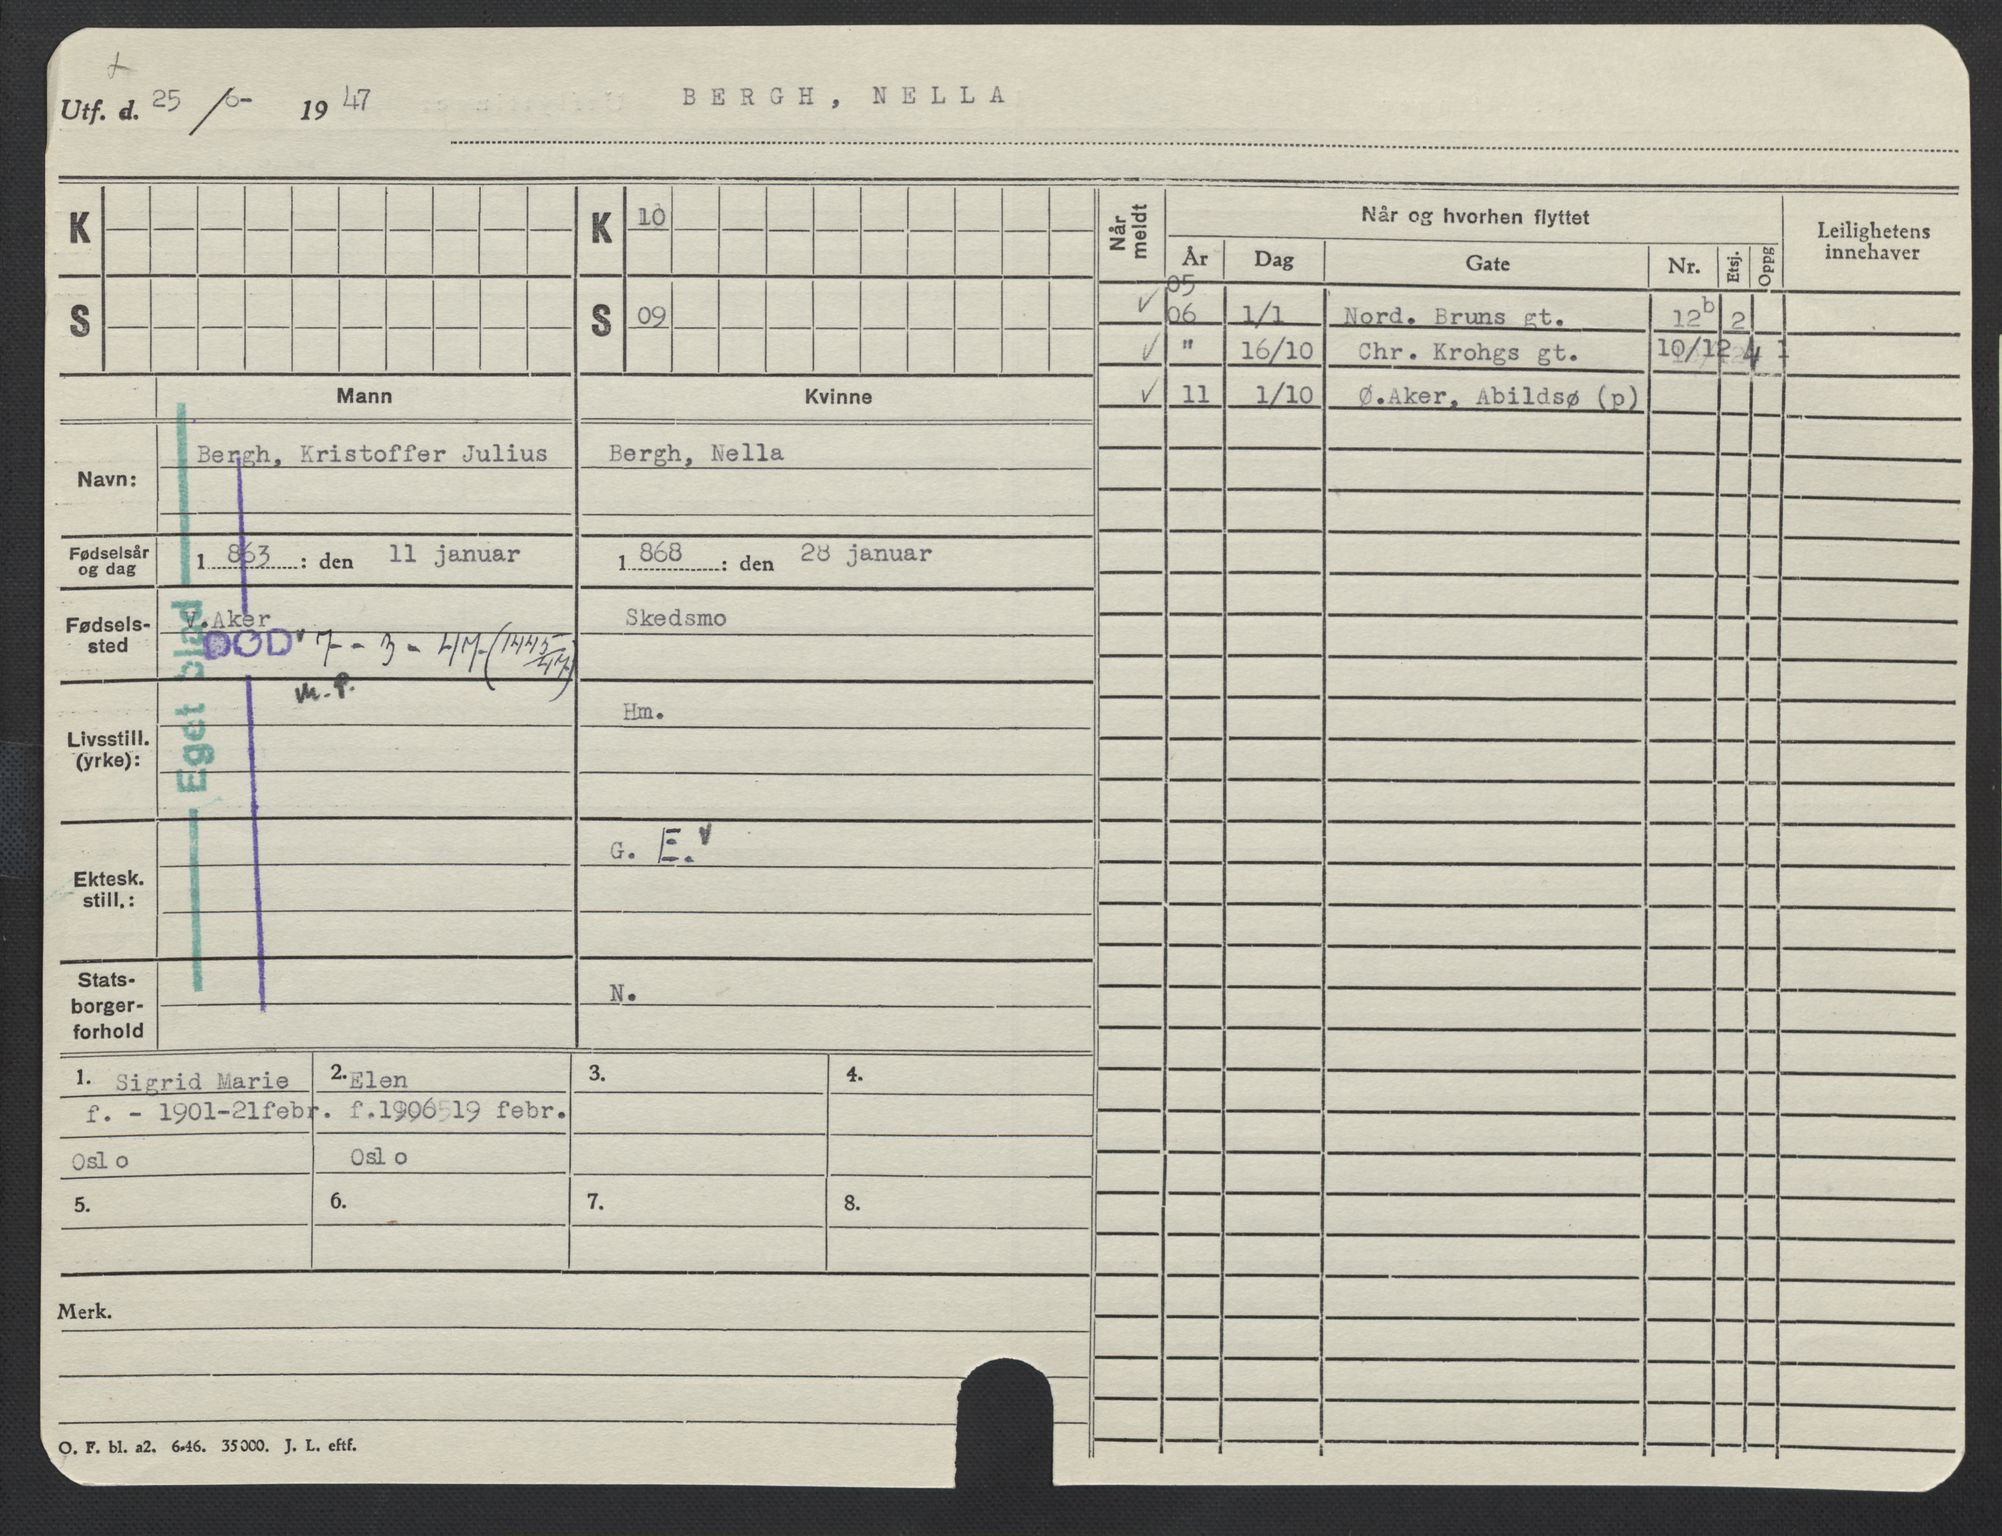 Utf. d. 25/6- 1947 BERGH, NELLA
K K 10
S S 09
Når meldt Når og hvorhen flyttet Leilighetens innehaver
År Dag Gate Nr. Etsj. Oppg
05
06 1/1 Nord. Bruns gt. 12b 2
" 16/10 Chr. Krohgs gt. 10/12 4 1
11 1/10 Ø.Aker, Abildsø (p)
Mann Kvinne
Navn: Bergh, Kristoffer Julius Bergh, Nella
Fødselsår og dag 1 863 : den 11 januar 1 868 : den 28 januar
Fødsels-
sted V.Aker Skedsmo
DØD 7-3-47 (1445/47)
m.P.
Eget blad
Livsstill.
(yrke): Hm.
Ektesk.
still.: G. E.
Stats-
borger-
forhold N.
1. Sigrid Marie 2. Elen 3. 4.
f. - 1901-21febr. f.1906 19 febr.
Oslo Oslo
5. 6. 7. 8.
Merk.
O. F. bl. a2. 6-46. 35000. J. L. eftf.